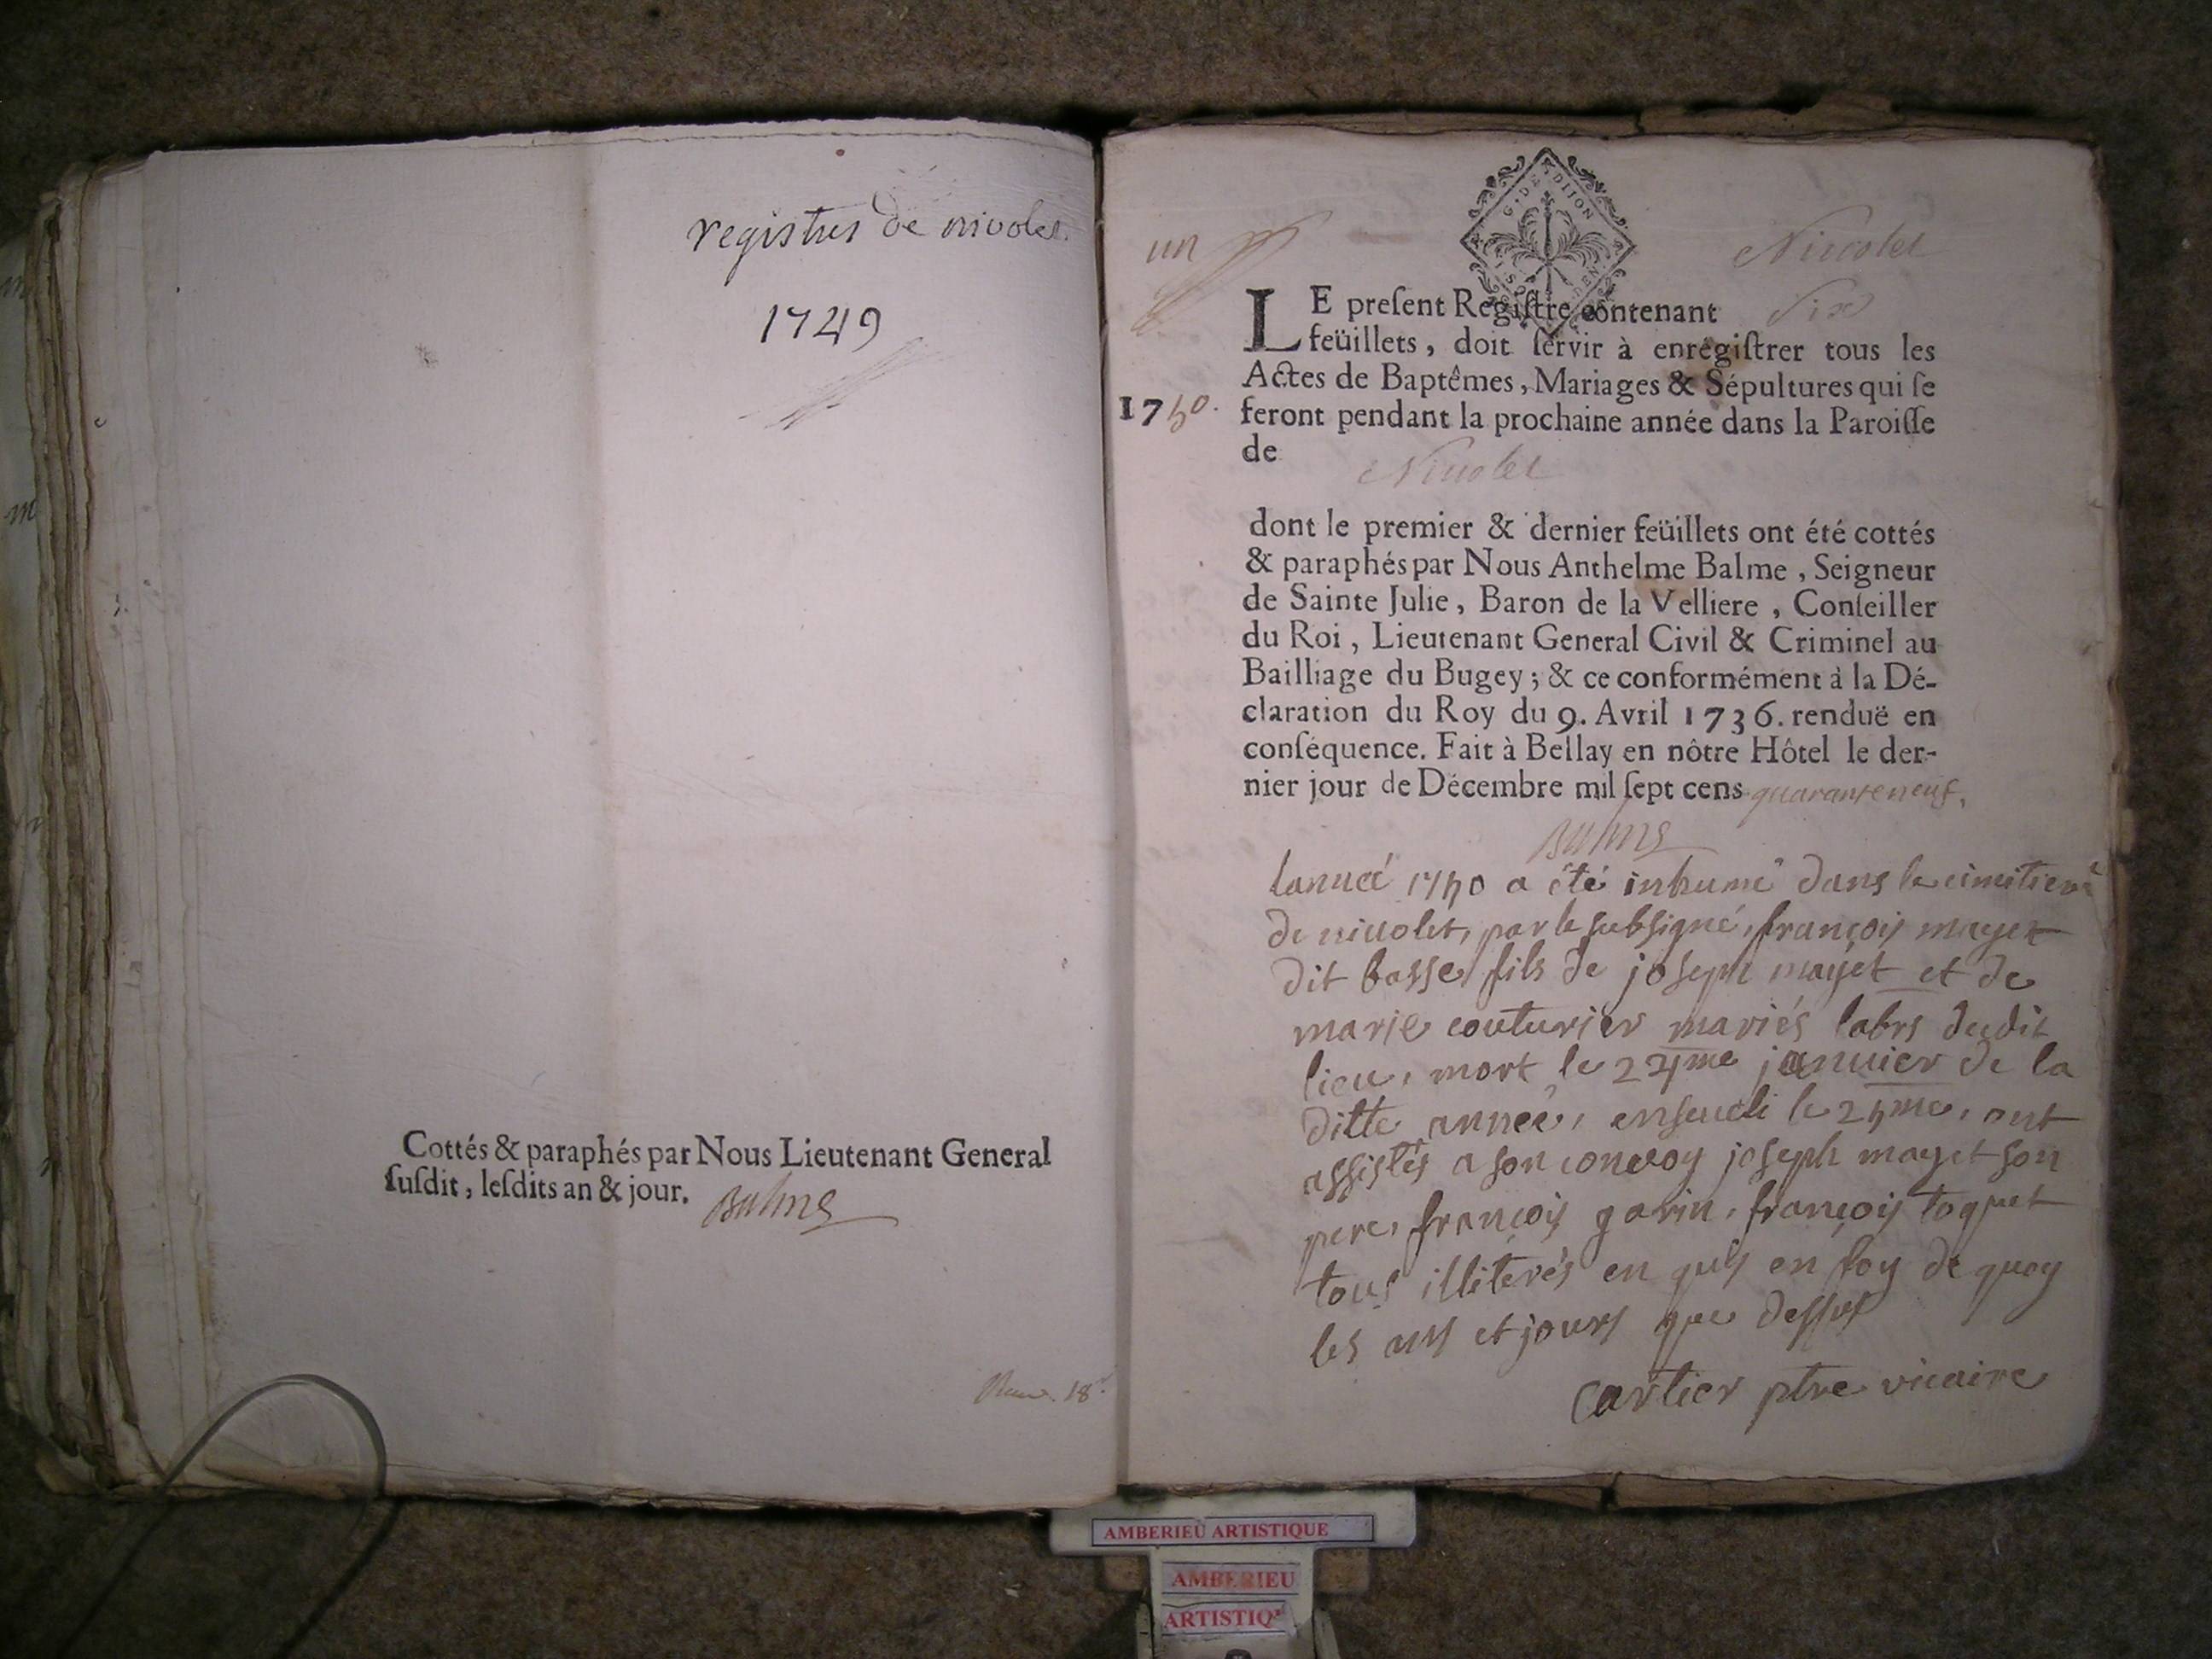 registres de nivolet
1749
Cottés & paraphés par Nous Lieutenant General
susdit, lesdits an & jour. Balme
un
G. DE DIJON
Nivolet
LE preſent Regiſtre contenant Six
feüillets, doit ſervir à enrégiſtrer tous les
Actes de Baptêmes, Mariages & Sépultures qui ſe
1750. feront pendant la prochaine année dans la Paroiſſe
de Nivolet
dont le premier & dernier feüillets ont été cottés
& paraphés par Nous Anthelme Balme, Seigneur
de Sainte Julie, Baron de la Velliere, Conſeiller
du Roi, Lieutenant General Civil & Criminel au
Bailliage du Bugey; & ce conformément à la Dé-
claration du Roy du 9. Avril 1736. renduë en
conſéquence. Fait à Bellay en nôtre Hôtel le der-
nier jour de Décembre mil ſept cens quaranteneuf.
Balme
lanneé 1750 a été inhumé dans le cimitiere
de nivolet, par le subsigné, françois mayet
dit basse fils de joseph mayet et de
marie couturier mariés labrs dudit
lieu, mort le 24me januier de la
ditte anneé, enseueli le 25me, ont
assistés a son convoy joseph mayet son
pere, françois garin, françois toquet
tous illiterés en quis en foy de quoy
les ans et jours que dessus
Cartier ptre vicaire
AMBERIEU ARTISTIQUE
AMBERIEU
ARTISTIQ